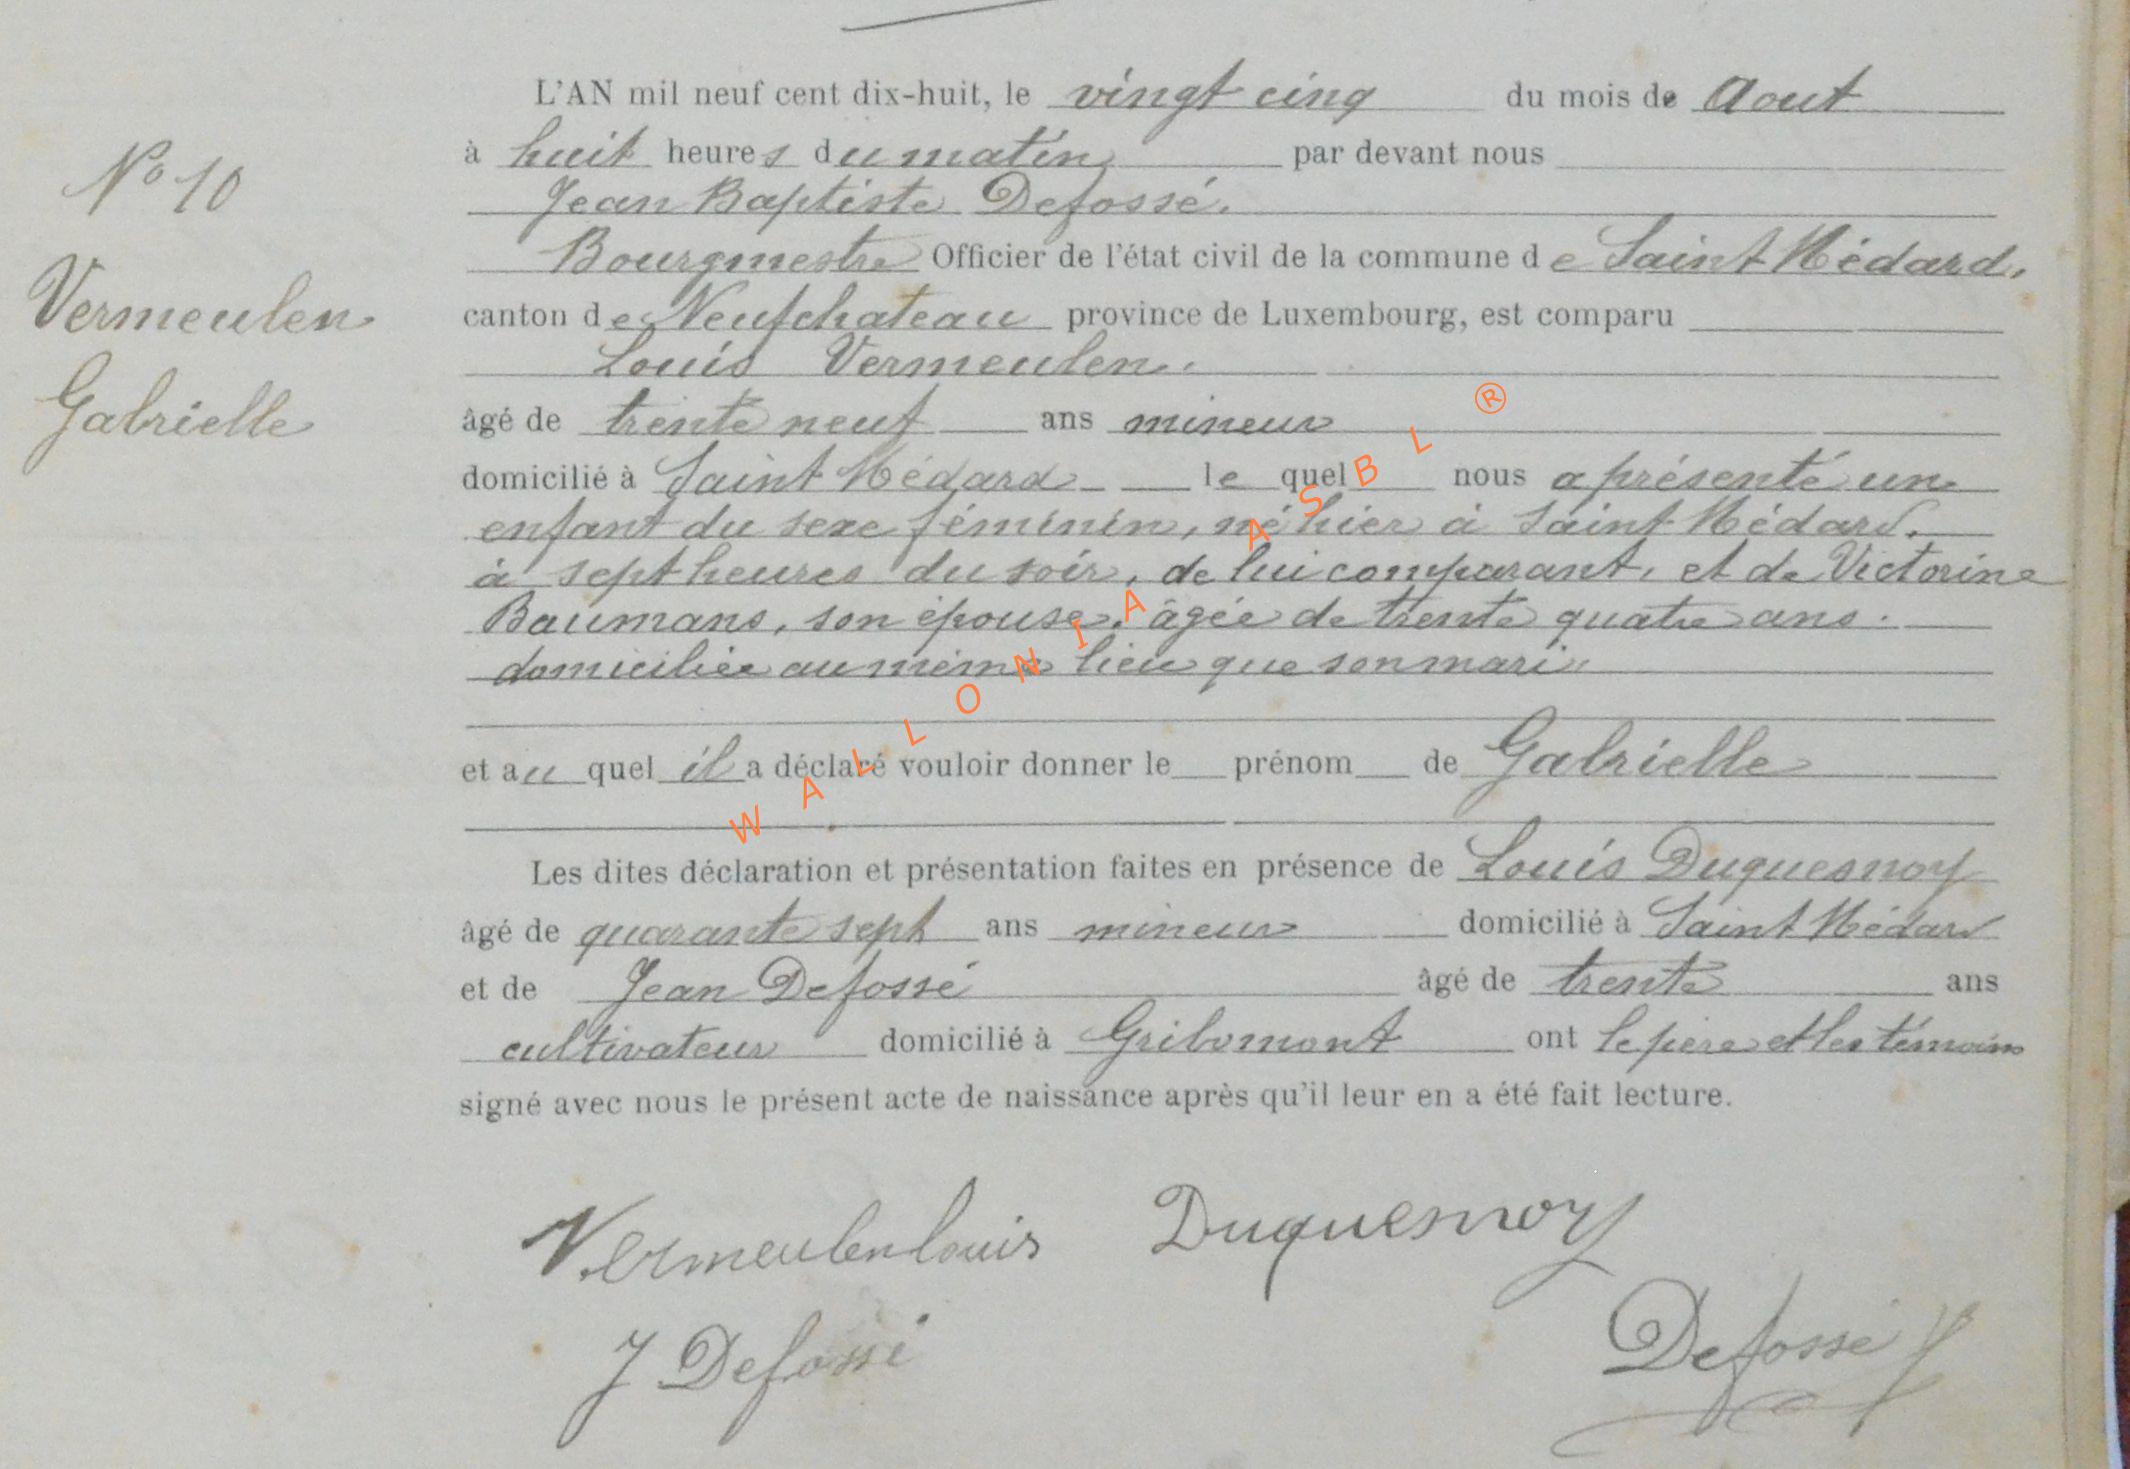 L'AN mil neuf cent dix-huit, le vingt cinq du mois de Aout
à huit heures du matin, par devant nous
Jean Baptiste Defossé.
Bourgmestre Officier de l'état civil de la commune de Saint Médard,
canton de Neufchateau province de Luxembourg, est comparu
Louis Vermeulen.
âgé de trente neuf ans mineur
domicilié à Saint Médard le quel nous a présenté un
enfant du sexe féminin, né hier à Saint Médard,
à sept heures du soir, de lui comparant, et de Victorine
Baumans, son épouse, âgée de trente quatre ans.
domiciliée au même lieu que son mari
et au quel il a déclaré vouloir donner le prénom de Gabrielle
Les dites déclaration et présentation faites en présence de Louis Duquesnoy
âgé de quarante sept ans mineur domicilié à Saint Médard
et de Jean Defossé âgé de trente ans
cultivateur domicilié à Gribomont ont le père et les témoins
signé avec nous le présent acte de naissance après qu'il leur en a été fait lecture.
No 10
Vermeulen
Gabrielle
Vermeulen Louis Duquesnoy
J Defossé Defossé
WALLONIA ASBL ®